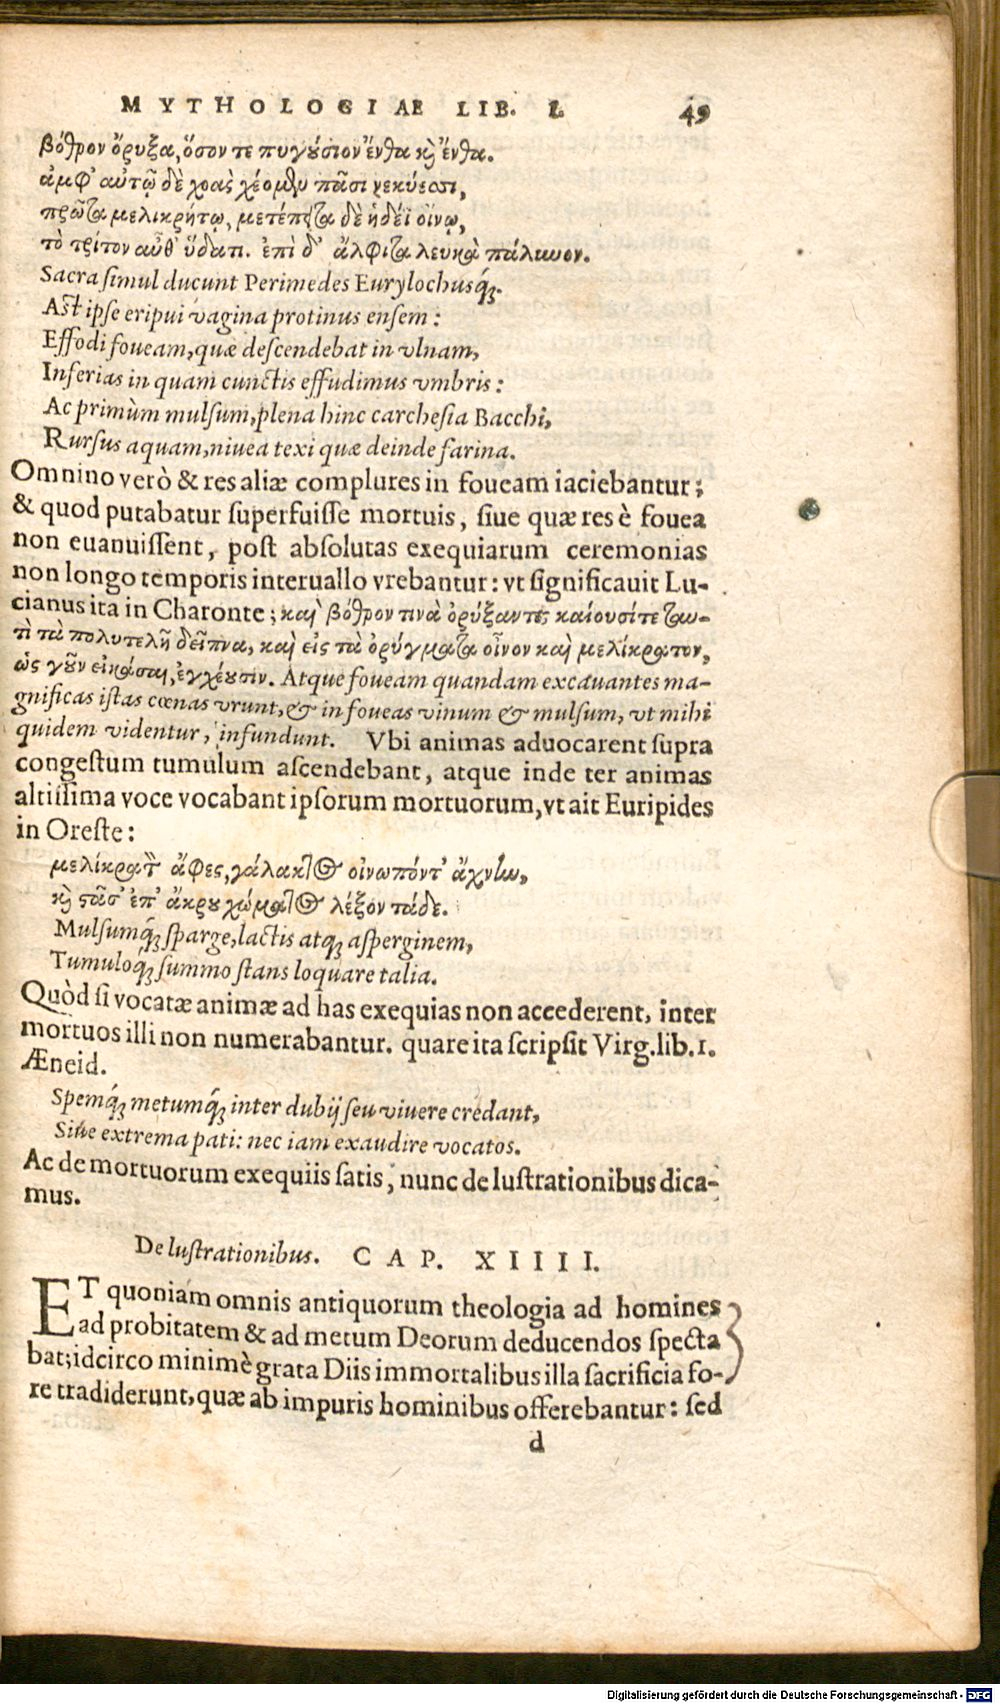 MYTHOLOGIAE LIB. I. 49
βόθρον ὄρυξα, ὅσον τε πυγούσιον ἔνθα κὶ ἔνθα.
ἀμφ' αὐτῷ δὲ χοὰς χέομῳ πᾶσι νεκύεσσι,
πρῶτα μελικρήτῳ, μετέπειτα δὲ ἡδέϊ οἴνῳ,
τὸ τρίτον αὖθ' ὕδατι. ἐπὶ δ' ἄλφιτα λευκὰ πάλιωον.
Sacra simul ducunt Perimedes Eurylochusq́;.
Ast ipse eripui vagina protinus ensem:
Effodi foueam, quæ descendebat in vlnam,
Inferias in quam cunctis effudimus vmbris:
Ac primùm mulsum, plena hinc carchesia Bacchi,
Rursus aquam, niuea texi quæ deinde farina.
Omnino verò & res aliæ complures in foueam iaciebantur;
& quod putabatur superfuisse mortuis, siue quæ res è fouea
non euanuissent, post absolutas exequiarum ceremonias
non longo temporis interuallo vrebantur: vt significauit Lu-
cianus ita in Charonte; καὶ βόθρον τινὰ ὀρύξαντες καίουσίτε ταυ-
τὶ τὰ πολυτελῆ δεῖπνα, καὶ εἰς τὰ ὀρύγματα οἶνον καὶ μελίκρατον,
ὡς γοῦν εἰκάσαι, ἐγχέουσιν. Atque foueam quandam excauantes ma-
gnificas istas cœnas vrunt, & in foueas vinum & mulsum, vt mihi
quidem videntur, infundunt. Vbi animas aduocarent supra
congestum tumulum ascendebant, atque inde ter animas
altissima voce vocabant ipsorum mortuorum, vt ait Euripides
in Oreste:
μελίκρατ' ἄφες, γάλακτος οἰνωπόντ' ἄχνω,
κὶ στᾶσ' ἐπ' ἄκρου χώματος λέξον τάδε.
Mulsumq́; sparge, lactis atq; asperginem,
Tumuloq́; summo stans loquare talia.
Quòd si vocatæ animæ ad has exequias non accederent, inter
mortuos illi non numerabantur. quare ita scripsit Virg. lib. 1.
Æneid.
Spemq́; metumq́; inter dubij seu viuere credant,
Siue extrema pati: nec iam exaudire vocatos.
Ac de mortuorum exequiis satis, nunc de lustrationibus dica-
mus.
De lustrationibus. CAP. XIIII.
ET quoniam omnis antiquorum theologia ad homines
ad probitatem & ad metum Deorum deducendos specta
bat; idcirco minimè grata Diis immortalibus illa sacrificia fo-
re tradiderunt, quæ ab impuris hominibus offerebantur: sed
d
Digitalisierung gefördert durch die Deutsche Forschungsgemeinschaft - DFG